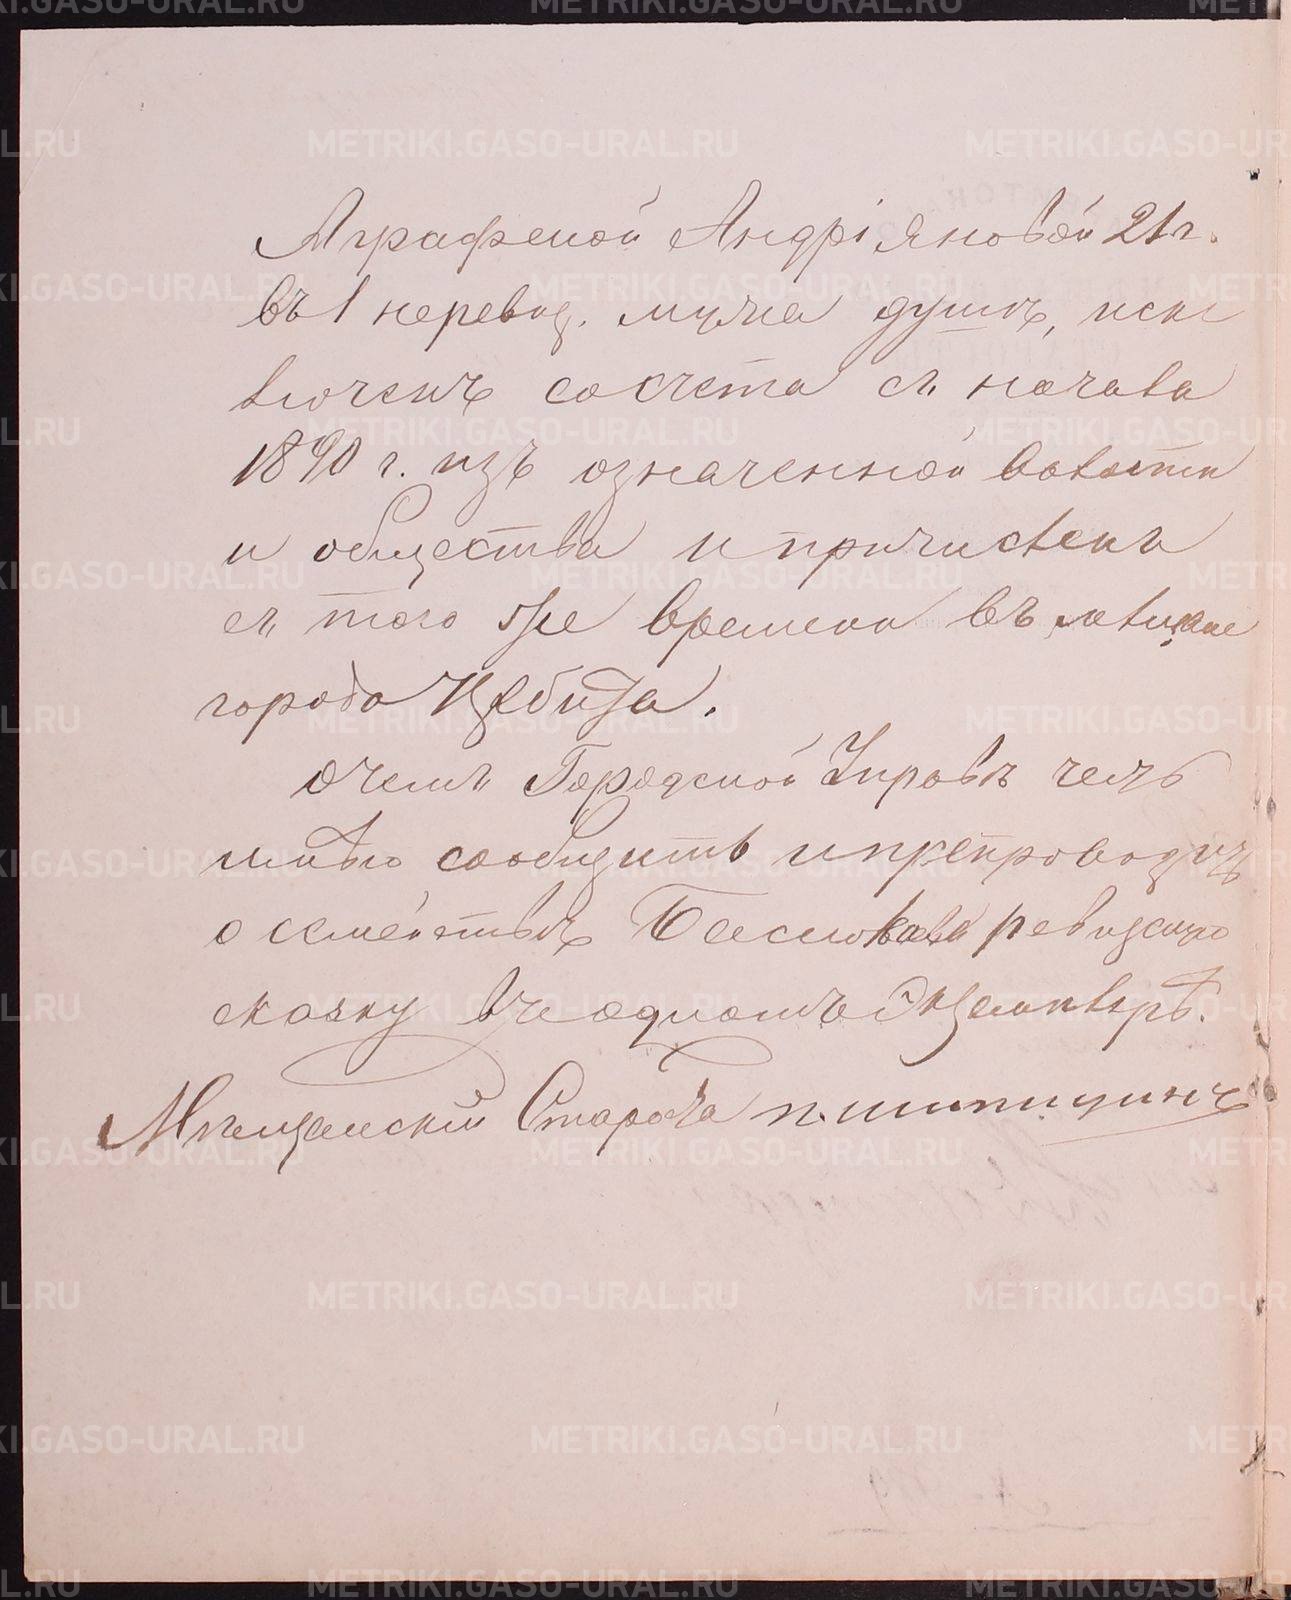 Аграфеной Андріяновой 21 г.
въ 1 перевод. мужа душѣ, иск
люченъ со счета съ начала
1890 г. изъ означенной волости
и общества и причисленъ
съ того же времени въ мѣщане
города Ирбита.
О чемъ Городской Управѣ честь
имѣю сообщить и препроводить
о семействѣ ревизскую
сказку въ одномъ экземплярѣ.
Мѣщанскій Староста П. Шипицинъ
METRIKI.GASO-URAL.RU